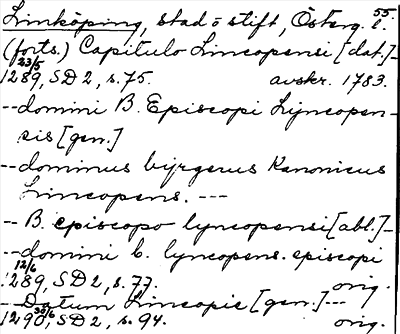 55.
Linköping, stad o stift, Österg. l.
(forts.) Capitulo Lincopensi [dat.]-
23/5
1289, SD 2, s. 75. avskr. 1783.
-- domini B. Episcopi Lijncopen-
sis [gen.]
-- dominus bijrgerus Kanonicus
Lincopens. ---
-- B. episcopo lyncopensi [abl.]-
-- domini b. lyncopens. episcopi
12/6
1289, SD 2, s. 77. orig.
-- Datum Lincopie [gen.] ---
30/6
1290, SD 2, s. 94. orig.